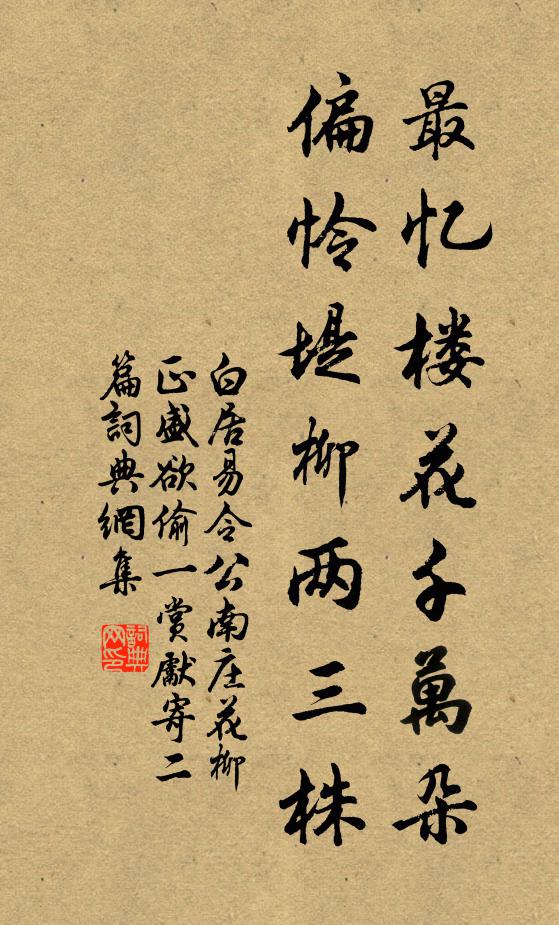 最忆楼花千萬朵
偏怜堤柳两三株
白居易令公南庄花柳
正盛欲偷一赏獻寄二
篇詞典網集
詞典
网印